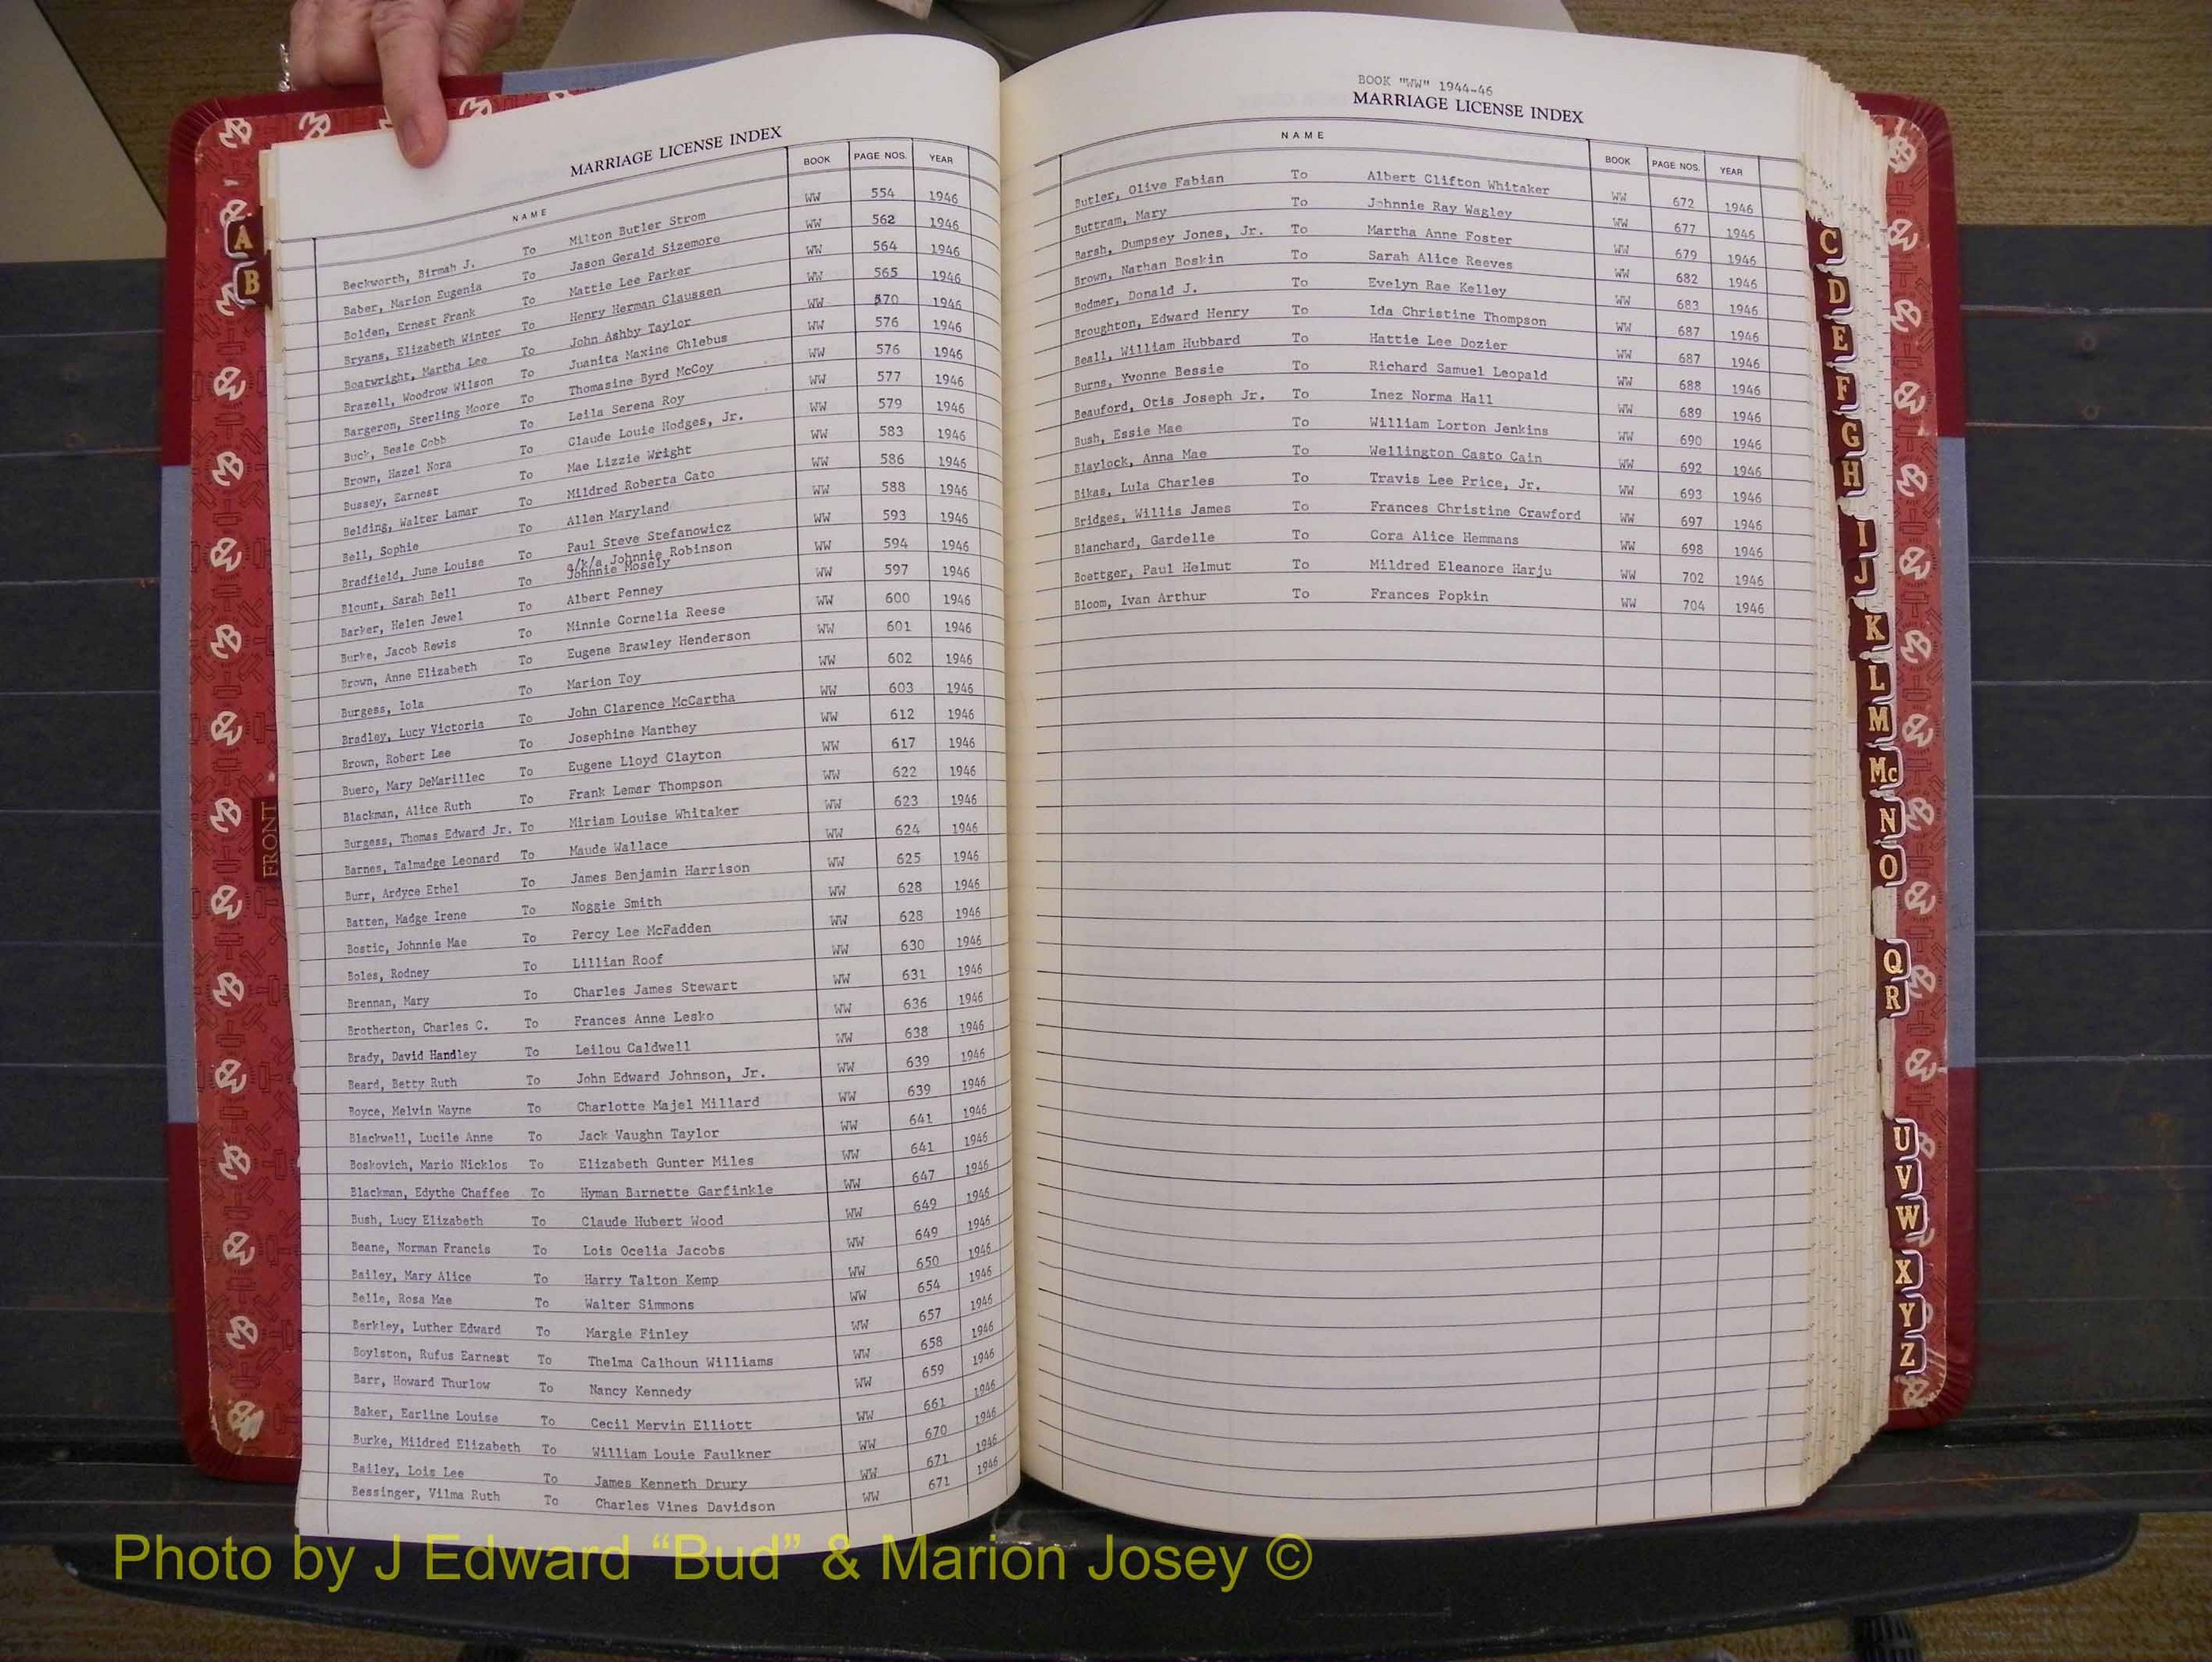 MARRIAGE LICENSE INDEX
NAME BOOK PAGE NOS. YEAR
Beckworth, Birmah J. To Milton Butler Strom WW 554 1946
Baber, Marion Eugenia To Jason Gerald Sizemore WW 562 1946
Bolden, Ernest Frank To Mattie Lee Parker WW 564 1946
Bryans, Elizabeth Winter To Henry Herman Claussen WW 565 1946
Boatwright, Martha Lee To John Ashby Taylor WW 570 1946
Brazell, Woodrow Wilson To Juanita Maxine Chlebus WW 576 1946
Bargeron, Sterling Moore To Thomasine Byrd McCoy WW 576 1946
Buck, Beale Cobb To Leila Serena Roy WW 577 1946
Brown, Hazel Nora To Claude Louie Hodges, Jr. WW 579 1946
Bussey, Earnest To Mae Lizzie Wright WW 583 1946
Belding, Walter Lamar To Mildred Roberta Cato WW 586 1946
Bell, Sophie To Allen Maryland WW 588 1946
Bradfield, June Louise To Paul Steve Stefanowicz WW 593 1946
a/k/a Johnnie Robinson
Blount, Sarah Bell To Johnnie Mosely WW 594 1946
Barker, Helen Jewel To Albert Penney WW 597 1946
Burke, Jacob Rewis To Minnie Cornelia Reese WW 600 1946
Brown, Anne Elizabeth To Eugene Brawley Henderson WW 601 1946
Burgess, Iola To Marion Toy WW 602 1946
Bradley, Lucy Victoria To John Clarence McCartha WW 603 1946
Brown, Robert Lee To Josephine Manthey WW 612 1946
Buero, Mary DeMarillec To Eugene Lloyd Clayton WW 617 1946
Blackman, Alice Ruth To Frank Lemar Thompson WW 622 1946
Burgess, Thomas Edward Jr. To Miriam Louise Whitaker WW 623 1946
Barnes, Talmadge Leonard To Maude Wallace WW 624 1946
Burr, Ardyce Ethel To James Benjamin Harrison WW 625 1946
Batten, Madge Irene To Noggie Smith WW 628 1946
Bostic, Johnnie Mae To Percy Lee McFadden WW 628 1946
Boles, Rodney To Lillian Roof WW 630 1946
Brennan, Mary To Charles James Stewart WW 631 1946
Brotherton, Charles C. To Frances Anne Lesko WW 636 1946
Brady, David Handley To Leilou Caldwell WW 638 1946
Beard, Betty Ruth To John Edward Johnson, Jr. WW 639 1946
Boyce, Melvin Wayne To Charlotte Majel Millard WW 639 1946
Blackwell, Lucile Anne To Jack Vaughn Taylor WW 641 1946
Boskovich, Mario Nicklos To Elizabeth Gunter Miles WW 641 1946
Blackman, Edythe Chaffee To Hyman Barnette Garfinkle WW 647 1946
Bush, Lucy Elizabeth To Claude Hubert Wood WW 649 1946
Beane, Norman Francis To Lois Ocelia Jacobs WW 649 1946
Bailey, Mary Alice To Harry Talton Kemp WW 650 1946
Belle, Rosa Mae To Walter Simmons WW 654 1946
Berkley, Luther Edward To Margie Finley WW 657 1946
Boylston, Rufus Earnest To Thelma Calhoun Williams WW 658 1946
Barr, Howard Thurlow To Nancy Kennedy WW 659 1946
Baker, Earline Louise To Cecil Mervin Elliott WW 661 1946
Burke, Mildred Elizabeth To William Louie Faulkner WW 670 1946
Bailey, Lois Lee To James Kenneth Drury WW 671 1946
Bessinger, Vilma Ruth To Charles Vines Davidson WW 671 1946
BOOK "WW" 1944-46
MARRIAGE LICENSE INDEX
NAME BOOK PAGE NOS. YEAR
Butler, Olive Fabian To Albert Clifton Whitaker WW 672 1946
Buttram, Mary To Johnnie Ray Wagley WW 677 1946
Barsh, Dumpsey Jones, Jr. To Martha Anne Foster WW 679 1946
Brown, Nathan Boskin To Sarah Alice Reeves WW 682 1946
Bodmer, Donald J. To Evelyn Rae Kelley WW 683 1946
Broughton, Edward Henry To Ida Christine Thompson WW 687 1946
Beall, William Hubbard To Hattie Lee Dozier WW 687 1946
Burns, Yvonne Bessie To Richard Samuel Leopald WW 688 1946
Beauford, Otis Joseph Jr. To Inez Norma Hall WW 689 1946
Bush, Essie Mae To William Lorton Jenkins WW 690 1946
Blaylock, Anna Mae To Wellington Casto Cain WW 692 1946
Bikas, Lula Charles To Travis Lee Price, Jr. WW 693 1946
Bridges, Willis James To Frances Christine Crawford WW 697 1946
Blanchard, Gardelle To Cora Alice Hemmans WW 698 1946
Boettger, Paul Helmut To Mildred Eleanore Harju WW 702 1946
Bloom, Ivan Arthur To Frances Popkin WW 704 1946
A
B
FRONT
C
D
E
F
G
H
I
J
K
L
M
Mc
N
O
Q
R
U
V
W
X
Y
Z
Photo by J Edward “Bud” & Marion Josey ©